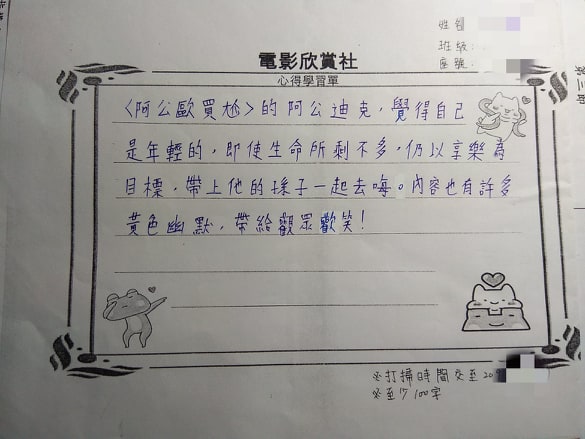 姓名
班級:
座號:
電影欣賞社
心得學習單
〈阿公歐買尬〉的阿公迪克，覺得自己
是年輕的，即使生命所剩不多，仍以享樂為
目標，帶上他的孫子一起去嗨。內容也有許多
黃色幽默，帶給觀眾歡笑！
※打掃時間交至20
※至少100字